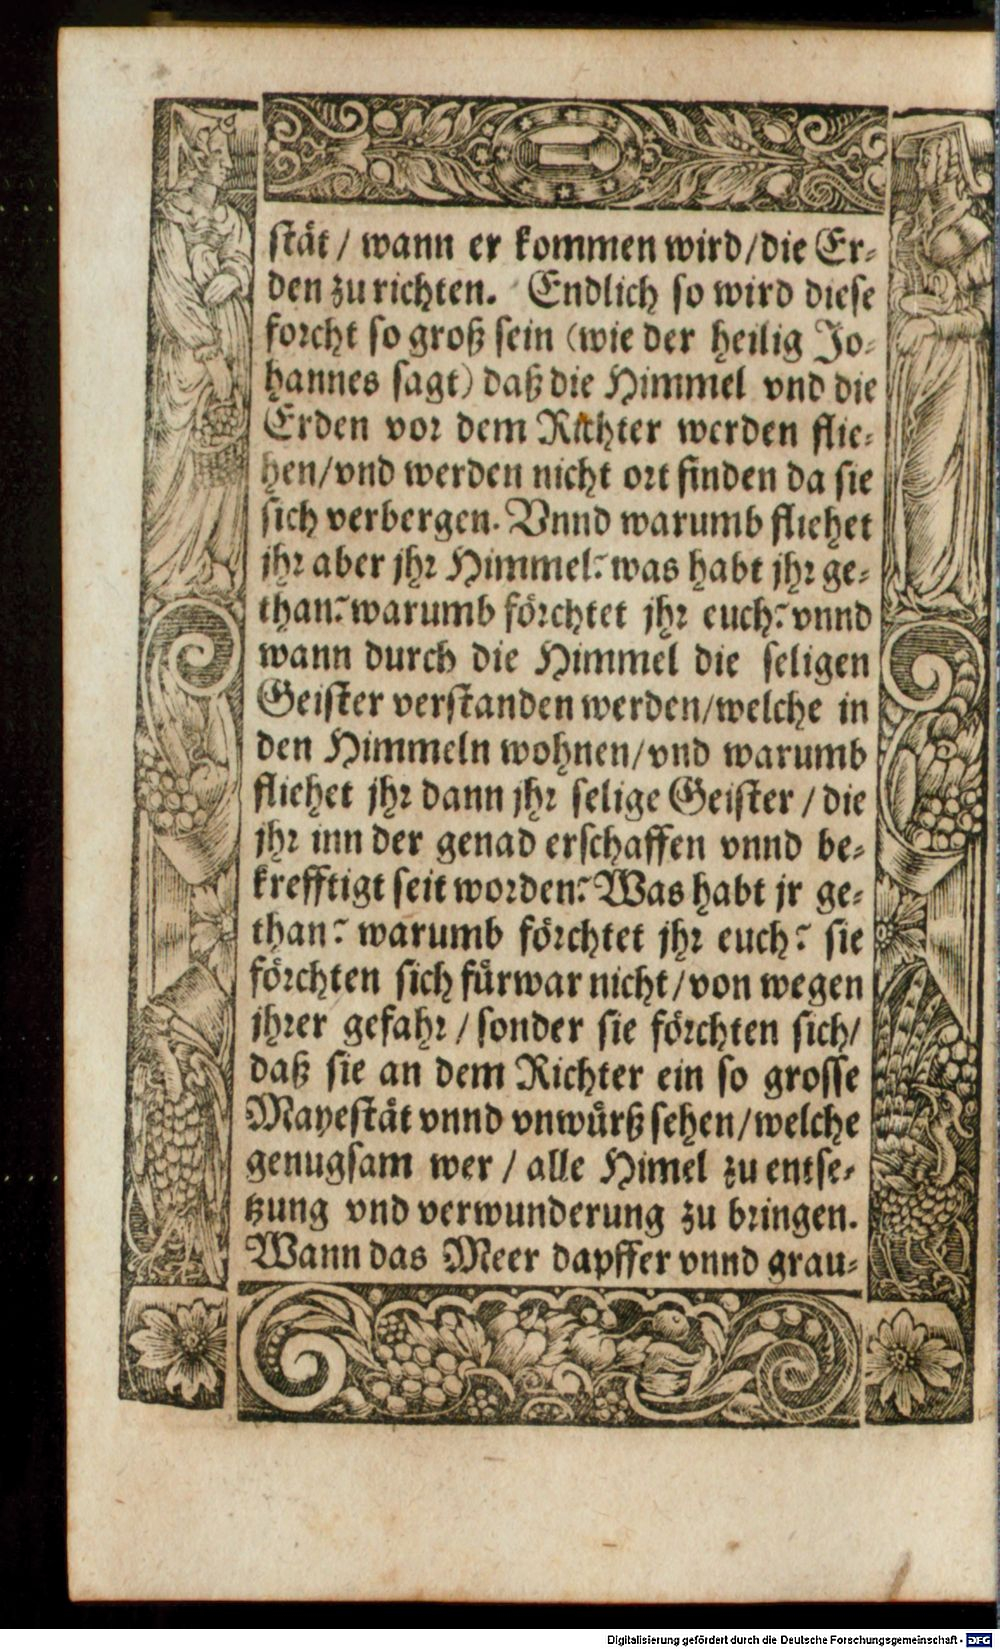 stät / wann er kommen wird/die Er⸗
den zu richten. Endlich so wird diese
forcht so groß sein (wie der heilig Jo⸗
hannes sagt) daß die Himmel vnd die
Erden vor dem Richter werden flie⸗
hen/vnd werden nicht ort finden da sie
sich verbergen. Vnnd warumb fliehet
jhr aber jhr Himmel? was habt jhr ge⸗
than? warumb förchtet jhr euch? vnnd
wann durch die Himmel die seligen
Geister verstanden werden/welche in
den Himmeln wohnen/vnd warumb
fliehet jhr dann jhr selige Geister / die
jhr inn der genad erschaffen vnnd be⸗
krefftigt seit worden? Was habt jr ge⸗
than? warumb förchtet jhr euch? sie
förchten sich fürwar nicht/von wegen
jhrer gefahr / sonder sie förchten sich/
daß sie an dem Richter ein so grosse
Mayestät vnnd vnwürß sehen/welche
genugsam wer / alle Himel zu entse⸗
tzung vnd verwunderung zu bringen.
Wann das Meer dapffer vnnd grau⸗
Digitalisierung gefördert durch die Deutsche Forschungsgemeinschaft - DFG